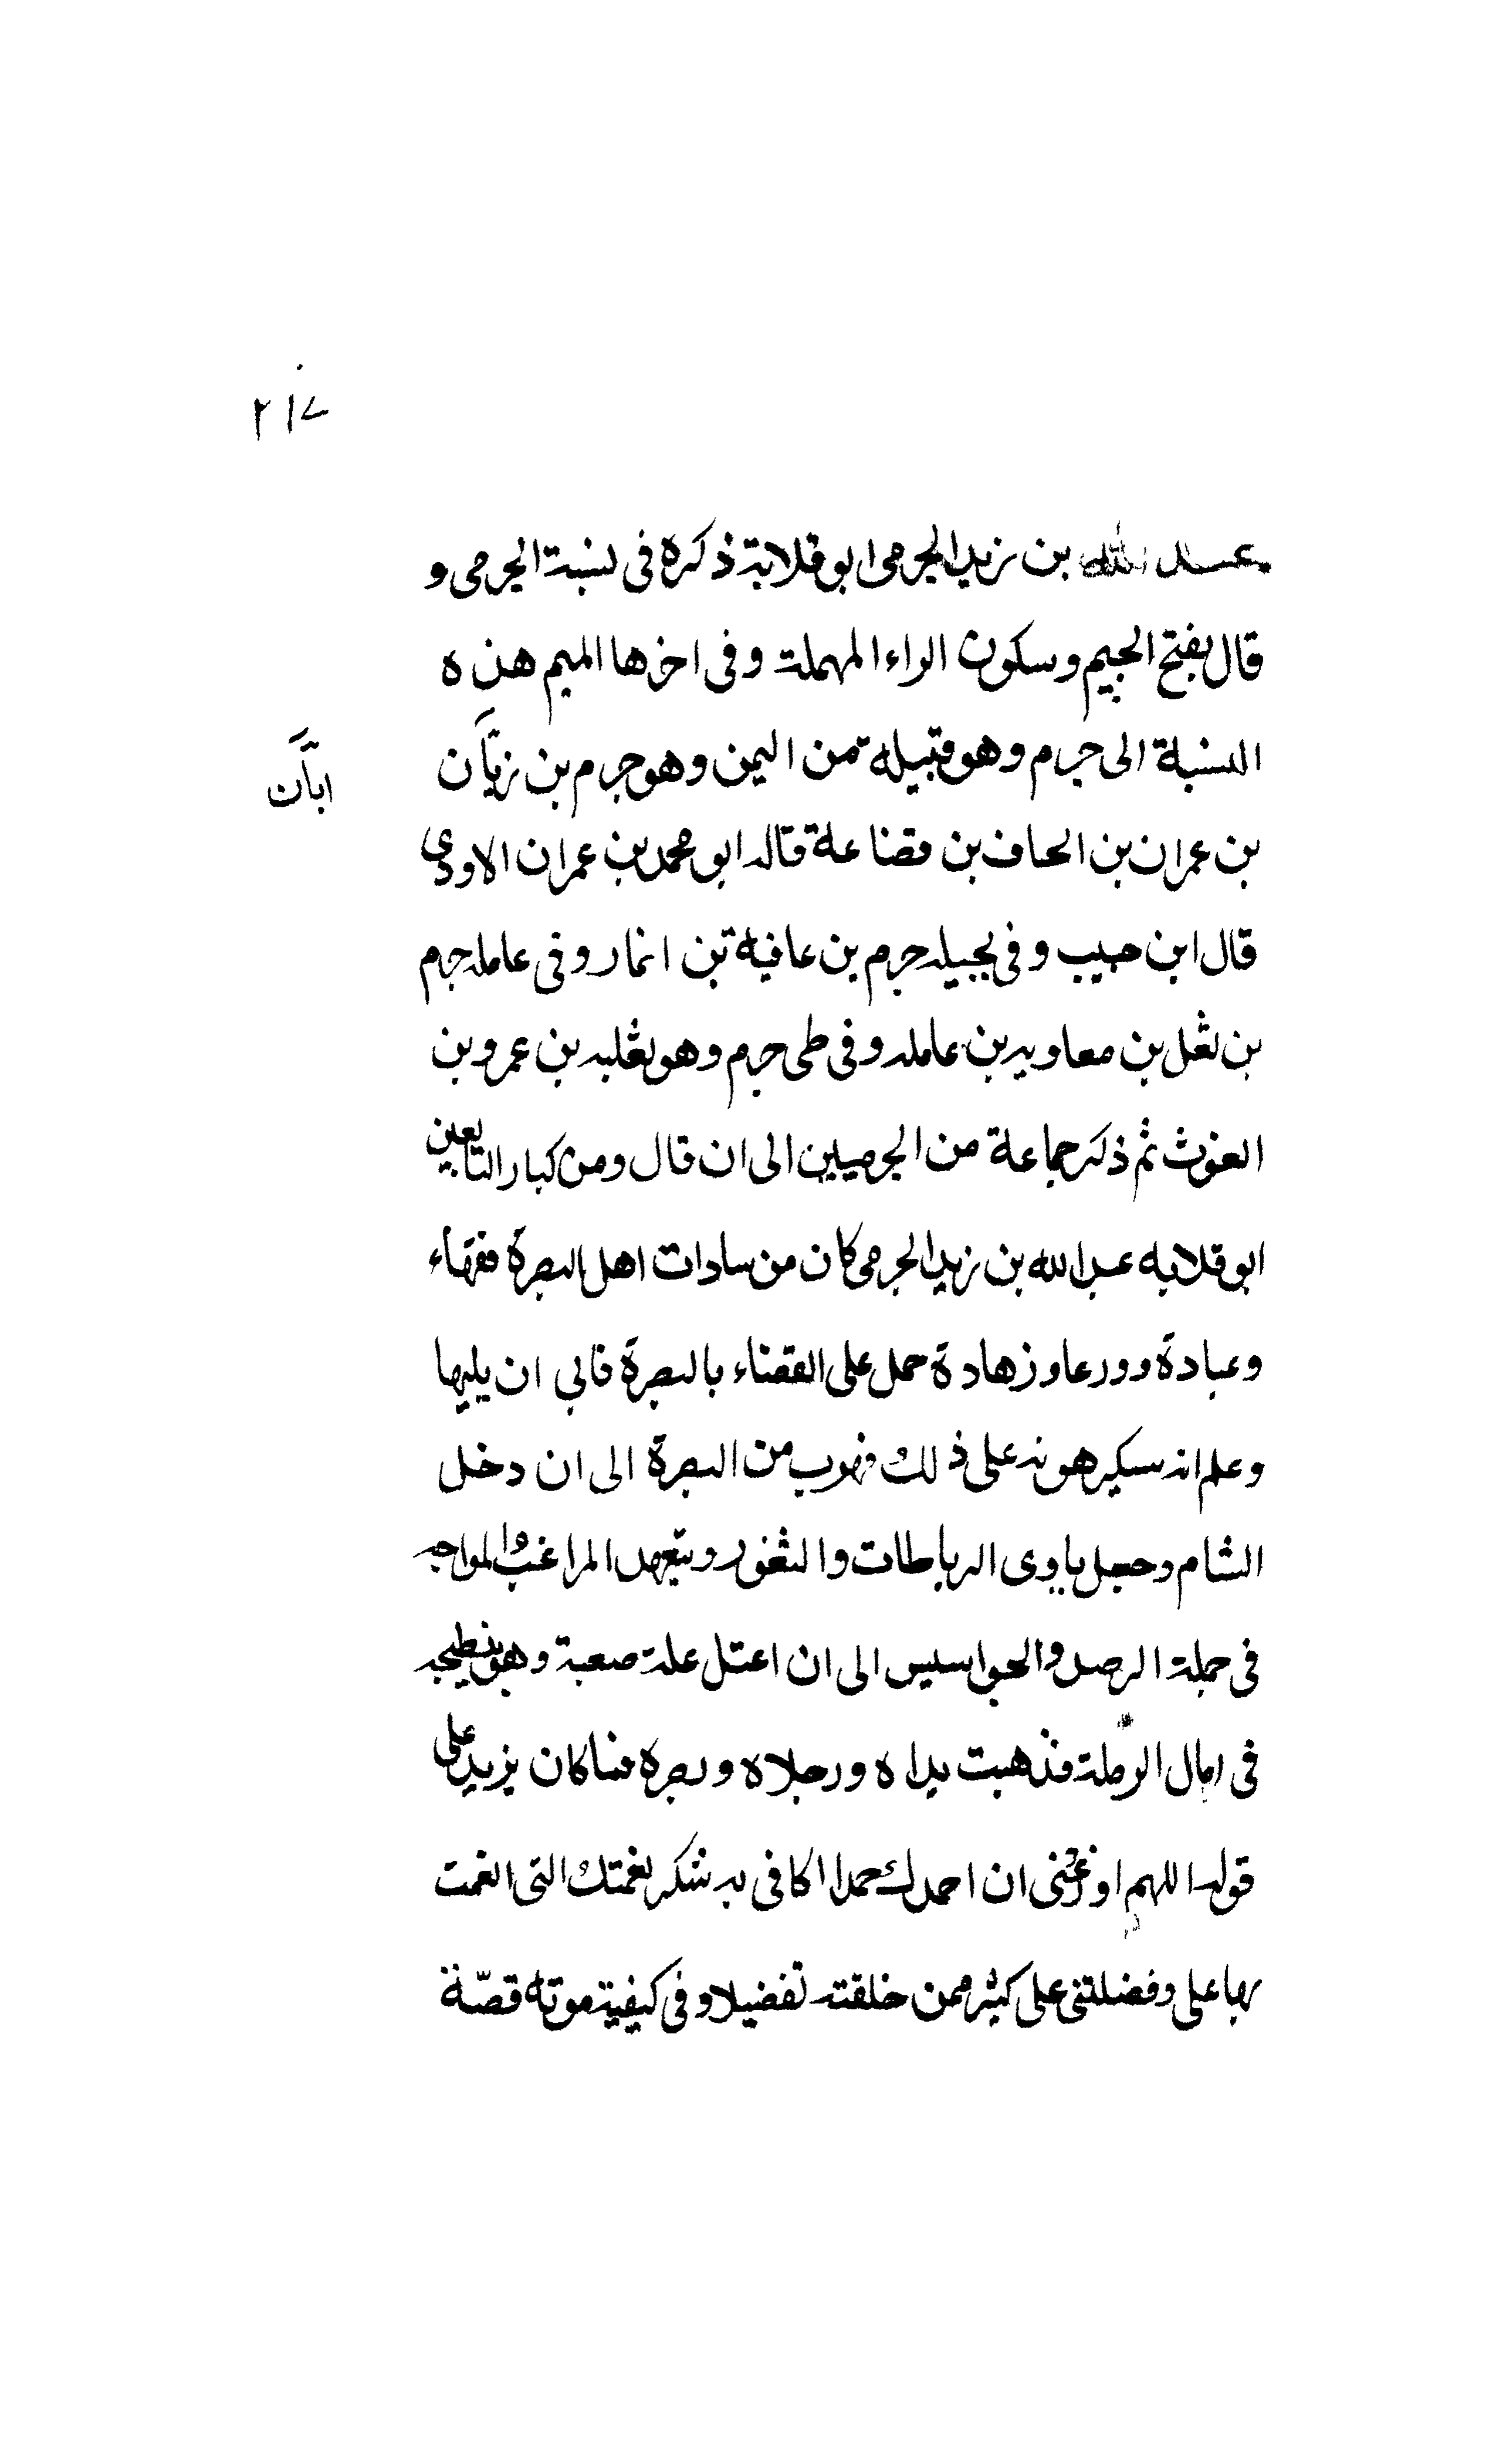 ٢١٧
عبد الله بن زيد الجرمى ابو قلابة ذكره فى نسبة الجرمى و
قال بفتح الجيم وسكون الراء المهملة وفى اخرها الميم هذه
النسبة الى جرم وهو قبيلة من اليمن وهو جرم بن زبّان
ابّان
بن عمران بن الحاف بن قضاعة قاله ابو محمد بن عمران الاودى
قال ابن حبيب وفى بجيله جرم بن عافية بن انمار وفى عامله جرم
بن ثعل بن معاويه بن عامله وفى طى جرم وهو ثعلبه بن عمرو بن
الغوث ثم ذكر جماعة من الجرميين الى ان قال ومن كبار التابعين
ابو قلابه عبد الله بن زيد الجرمى كان من سادات اهل البصرة فقهاء
وعبادة وورعا وزهادة حمل على القضاء بالبصرة فابى ان يليها
وعلم انه سيكرهونه على ذلك فهرب من البصرة الى ان دخل
الشام وجعل ياوى الرباطات والثغور ويتعهد المراغب والمواجه
فى جملة الرصد والجواسيس الى ان اعتل علة صعبة وهو
فى رمال الرملة فذهبت يداه ورجلاه وبصره فما كان يزيد على
قوله اللهم اوزعنى ان احمدك حمدا اكافى به شكر نعمتك التى انعمت
بها على وفضلتنى على كثير ممن خلقته تفضيلا وفى كيفية موته قصّة